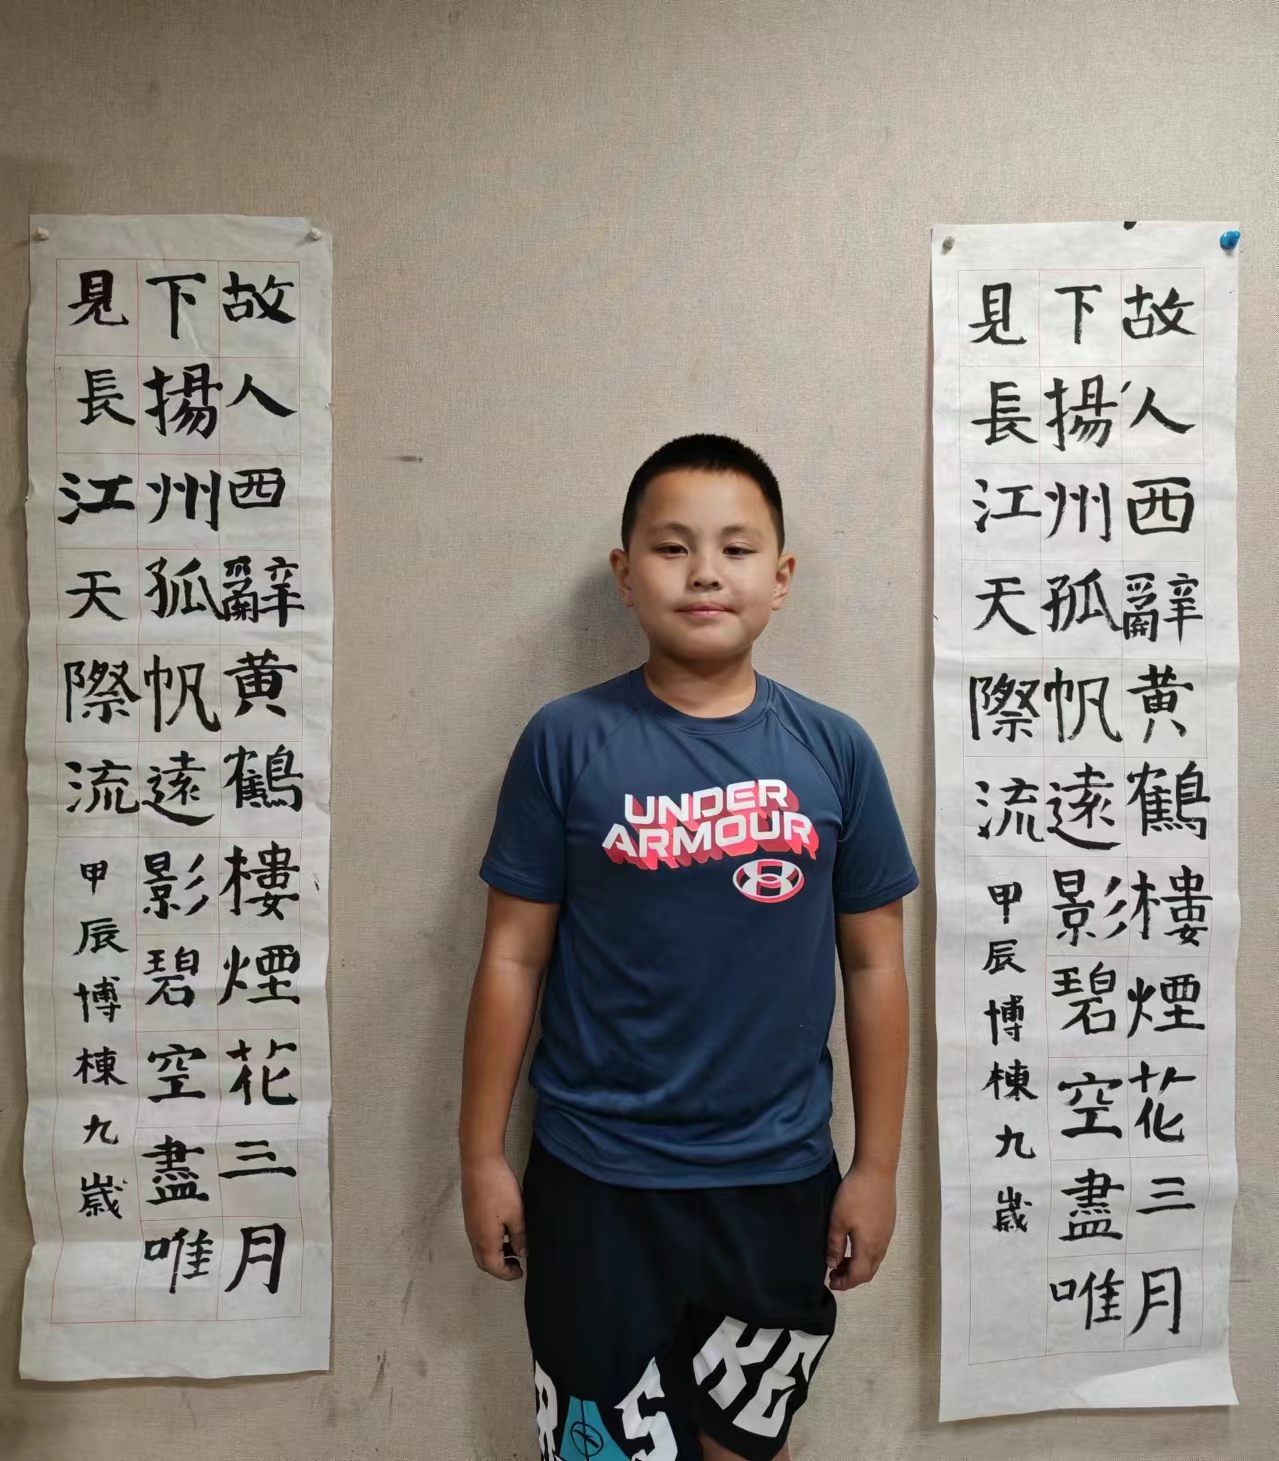 故人西辭黄鶴樓煙花三月
下揚州孤帆遠影碧空盡唯
見長江天際流
甲辰博棟九歲
UNDER
ARMOUR
故人西辭黄鶴樓煙花三月
下揚州孤帆遠影碧空盡唯
見長江天際流
甲辰博棟九歲